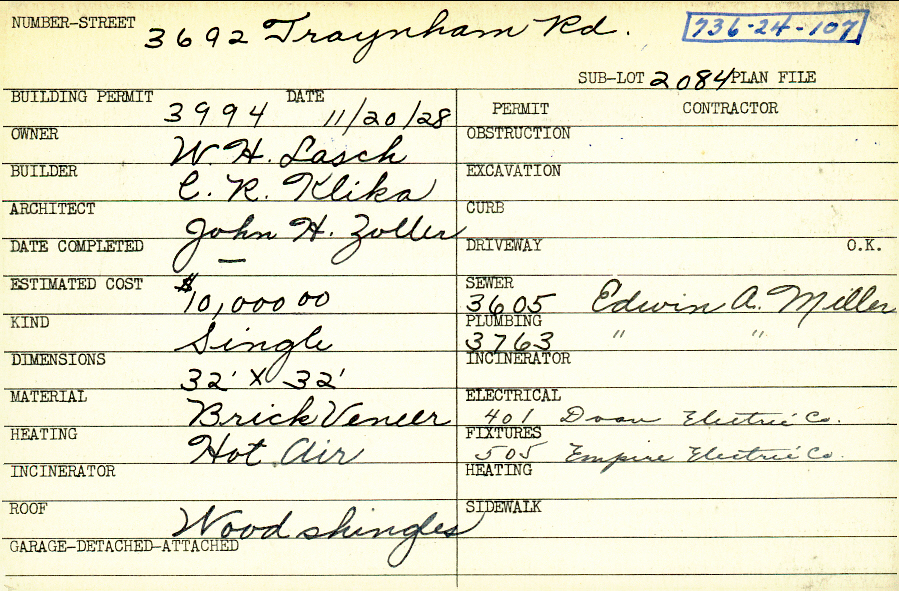 NUMBER-STREET 3692 Traynham Rd. 736-24-107
SUB-LOT 2084 PLAN FILE
BUILDING PERMIT 3994 DATE 11/20/28
PERMIT CONTRACTOR
OWNER W. H. Lasch
OBSTRUCTION
BUILDER C. R. Klika
EXCAVATION
ARCHITECT John H. Zoller
CURB
DATE COMPLETED —
DRIVEWAY O.K.
ESTIMATED COST $10,000 00
SEWER 3605 Edwin A. Miller
KIND Single
PLUMBING 3763 " "
DIMENSIONS 32' X 32'
INCINERATOR
MATERIAL Brick Veneer
ELECTRICAL 401 Doan Electric Co.
HEATING Hot Air
FIXTURES 505 Empire Electric Co.
INCINERATOR
HEATING
ROOF Wood shingles
SIDEWALK
GARAGE-DETACHED-ATTACHED